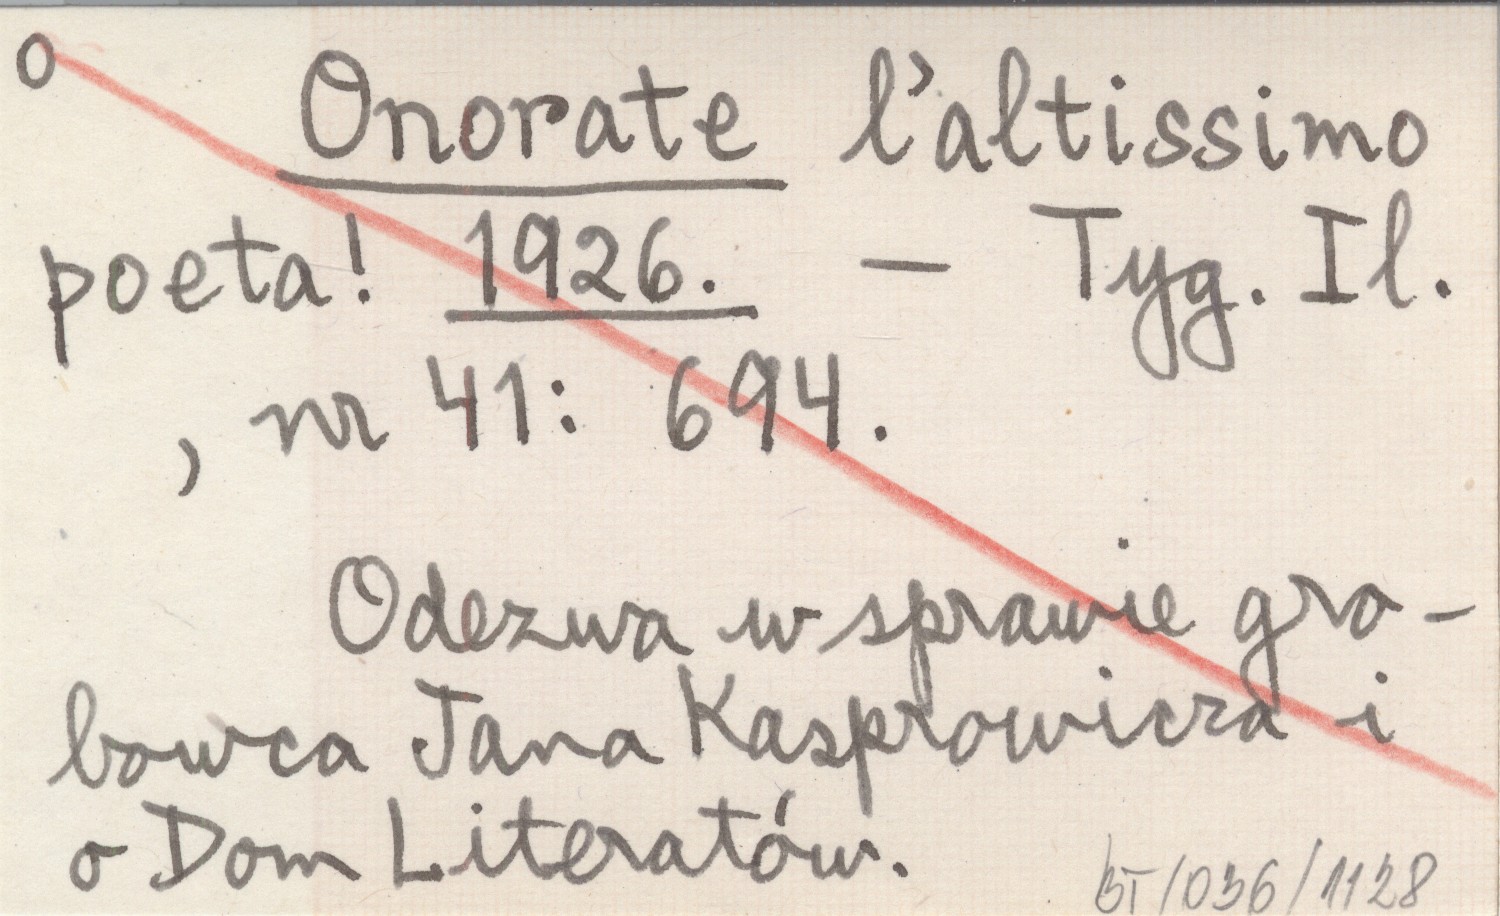 O
Onorate l'altissimo
poeta! 1926. — Tyg. Il.
, nr 41: 694.
Odezwa w sprawie gro-
bowca Jana Kasprowicza i
o Dom Literatów.
BT/036/1128